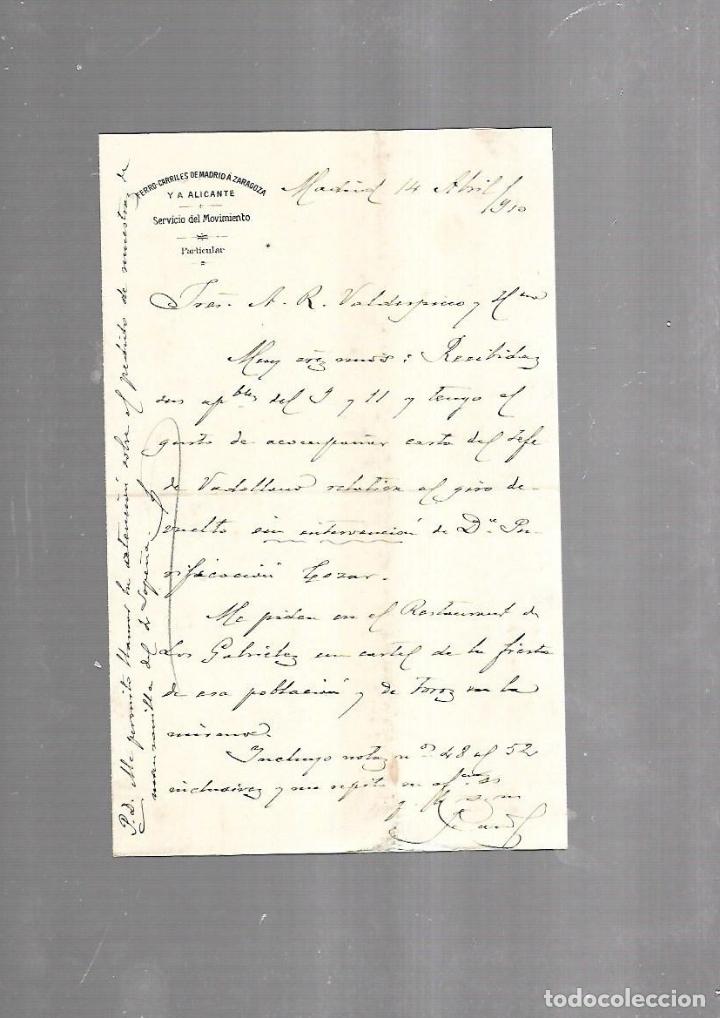 FERRO-CARRILES DE MADRID A ZARAGOZA
Y A ALICANTE
Servicio del Movimiento
Particular
Madrid 14 Abril 1910
Sres. A. R. Valdespino y Hno
Muy Srs mios: Recibidas
sus apbles del 9 y 11 y tengo el
gusto de acompañar carta del Jefe
de Vadollano relativa al giro de-
vuelto sin intervención de Dª Pu-
rificación
Me piden en el Restaurant de
Los Gabrieles un cartel de la fiesta
de esa población y de Toros
misma.
Incluyo notas nos 48 al 52
inclusives y me repito su
q. b. s. m.
P.D. Me permito llamar su atención sobre el pedido de muestras de
manzanilla del Sr Sopeña.
todocoleccion
todocoleccion.net